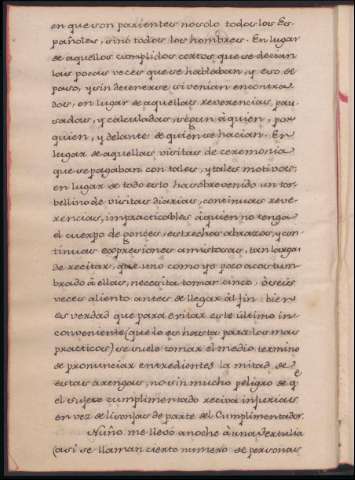 en que son parientes no solo todos los Es-
pañoles, sinó todos los hombres. En lugar
de aquellos cumplidos cortos, que se decian
las pocas veces que se hablaban, y eso de
paso, y sin detenerse si venian encontra-
dos, en lugar de aquellas reverencias, pau-
sadas, y calculadas, segun à quien, por
quien, y delante de quien se hacian. En
lugar de aquellas visitas de ceremonia
que se pagaban con tales, y tales motivos;
en lugar de todo esto ha sobrevenido un tor-
bellino de visitas diarias, continuas reve-
rencias, impracticables à quien no tenga
el cuerpo de goznes, estrechos abrazos, y con-
tinuas expresiones amistosas, tan largas
de recitar, que uno como yo poco acostum-
brado à ellas, necesita tomar cinco, ò seis
veces aliento antes de llegar al fin: bien
es verdad que para evitar este último in-
conveniente (que lo es hasta para los mas
practicos) se suele tomar el medio termino
de pronunciar entredientes la mitad de
estas arengas, no sin mucho peligro de q.e
el sujeto cumplimentado reciva injurias
en vez de lisonjas de parte del Cumplimentador.
Nuño me llevó anoche à una Tertulia
(asi se llaman cierto numero de personas